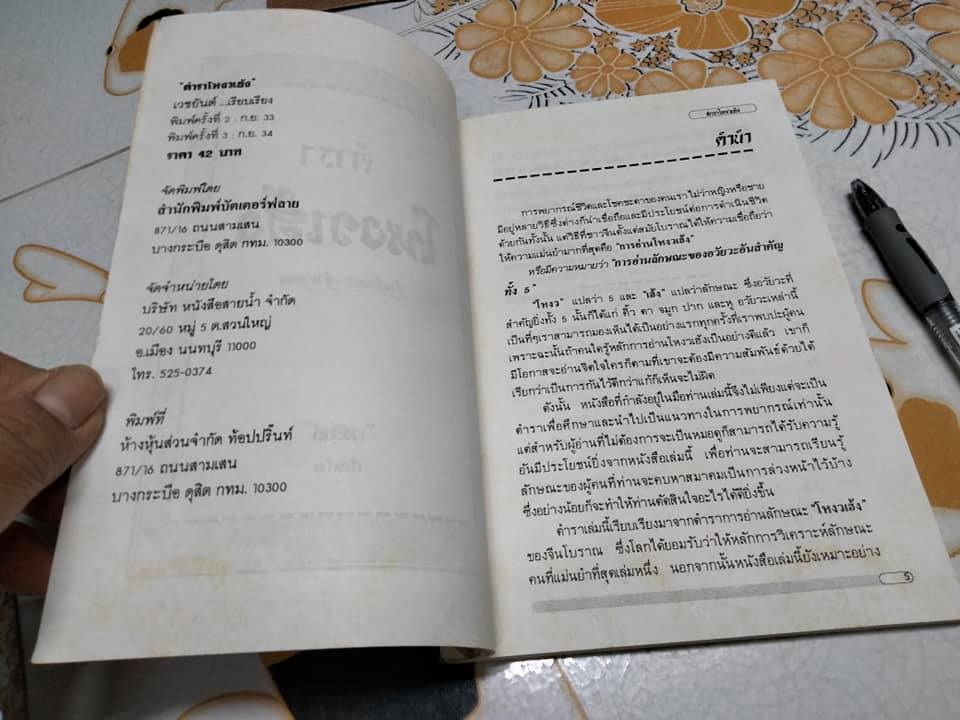 "ตำราโหงวเฮ้ง"
เวชยันต์ ...เรียบเรียง
พิมพ์ครั้งที่ 2 : ก.ย. 33
พิมพ์ครั้งที่ 3 : ก.ย. 34
ราคา 42 บาท
จัดพิมพ์โดย
สำนักพิมพ์บัตเตอร์ฟลาย
871/16 ถนนสามเสน
บางกระบือ ดุสิต กทม. 10300
จัดจำหน่ายโดย
บริษัท หนังสือสายน้ำ จำกัด
20/60 หมู่ 5 ต.สวนใหญ่
อ.เมือง นนทบุรี 11000
โทร. 525-0374
พิมพ์ที่
ห้างหุ้นส่วนจำกัด ท้อปปริ๊นท์
871/16 ถนนสามเสน
บางกระบือ ดุสิต กทม. 10300
ตำราโหงวเฮ้ง
คำนำ
การพยากรณ์ชีวิตและโชคชะตาของคนเราไม่ว่าหญิงหรือชาย
มีอยู่หลายวิธีซึ่งต่างก็น่าเชื่อถือและมีประโยชน์ต่อการดำเนินชีวิต
ด้วยกันทั้งนั้น แต่วิธีที่ชาวจีนตั้งแต่สมัยโบราณได้ให้ความเชื่อถือว่า
ให้ความแม่นยำมากที่สุดคือ "การอ่านโหงวเฮ้ง"
หรือมีความหมายว่า "การอ่านลักษณะของอวัยวะอันสำคัญ
ทั้ง 5"
"โหงว" แปลว่า 5 และ "เฮ้ง" แปลว่าลักษณะ ซึ่งอวัยวะที่
สำคัญยิ่งทั้ง 5 นั้นก็ได้แก่ คิ้ว ตา จมูก ปาก และหู อวัยวะเหล่านี้
เป็นที่ๆเราสามารถมองเห็นได้เป็นอย่างแรกทุกครั้งที่เราพบปะผู้คน
เพราะฉะนั้นถ้าคนใดรู้หลักการอ่านโหงวเฮ้งเป็นอย่างดีแล้ว เขาก็
มีโอกาสจะอ่านจิตใจใครก็ตามที่เขาจะต้องมีความสัมพันธ์ด้วยได้
เรียกว่าเป็นการกันไว้ดีกว่าแก้ก็เห็นจะไม่ผิด
ดังนั้น หนังสือที่กำลังอยู่ในมือท่านเล่มนี้จึงไม่เพียงแต่จะเป็น
ตำราเพื่อศึกษาและนำไปเป็นแนวทางในการพยากรณ์เท่านั้น
แต่สำหรับผู้อ่านที่ไม่ต้องการจะเป็นหมอดูก็สามารถได้รับความรู้
อันมีประโยชน์ยิ่งจากหนังสือเล่มนี้ เพื่อท่านจะสามารถเรียนรู้
ลักษณะของผู้คนที่ท่านจะคบหาสมาคมเป็นการล่วงหน้าไว้บ้าง
ซึ่งอย่างน้อยก็จะทำให้ท่านตัดสินใจอะไรได้ดียิ่งขึ้น
ตำราเล่มนี้เรียบเรียงมาจากตำราการอ่านลักษณะ "โหงวเฮ้ง"
ของจีนโบราณ ซึ่งโลกได้ยอมรับว่าให้หลักการวิเคราะห์ลักษณะ
คนที่แม่นยำที่สุดเล่มหนึ่ง นอกจากนั้นหนังสือเล่มนี้ยังเหมาะอย่าง
5